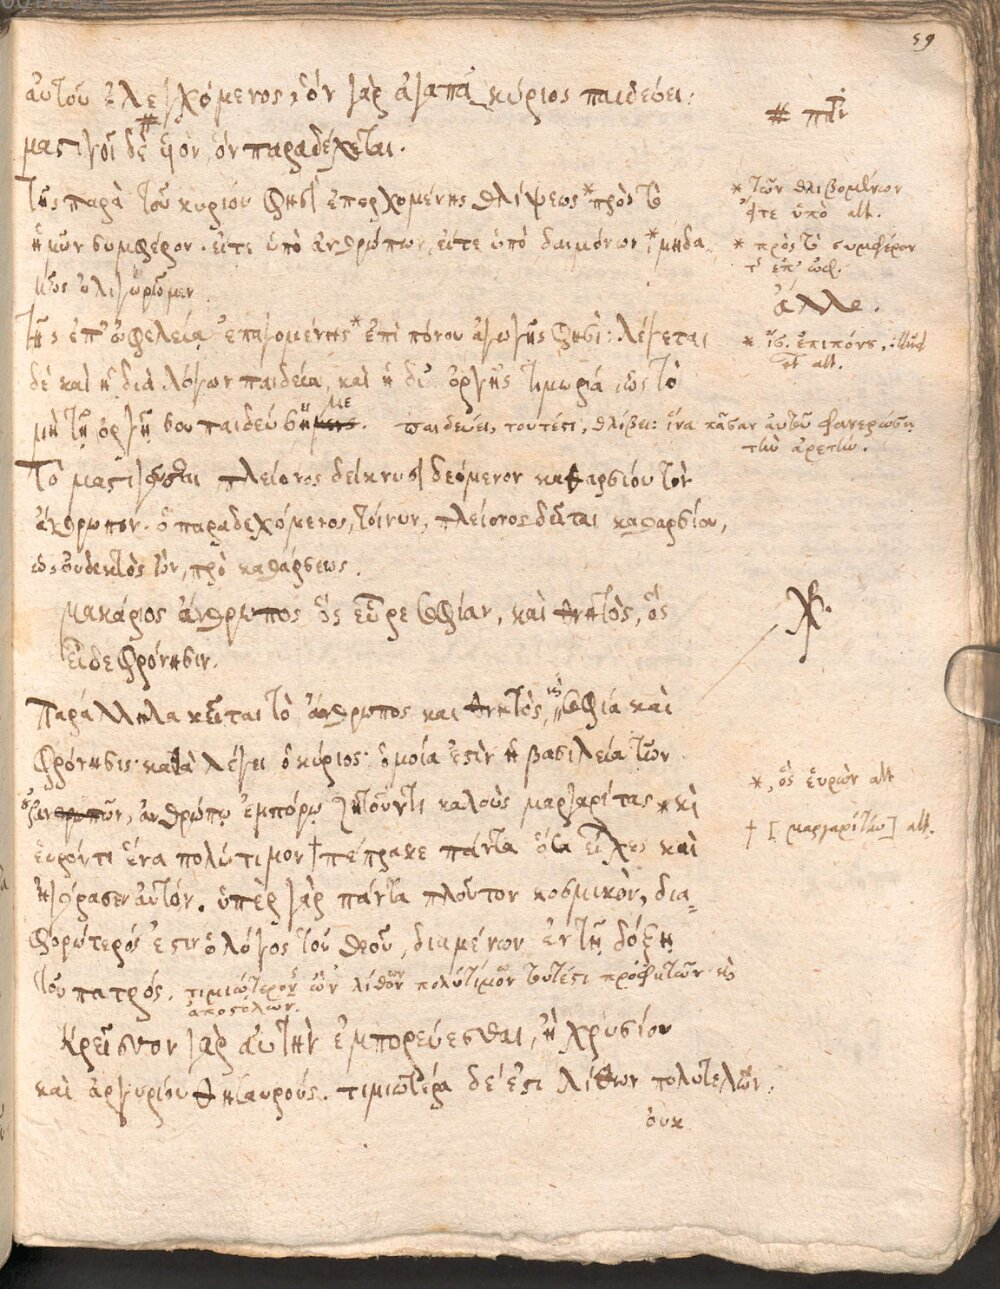 59
αὐτοῦ ἐλεγχόμενος, ὃν γὰρ ἀγαπᾷ κύριος παιδεύει·
μαστιγοῖ δὲ υἱὸν, ὃν παραδέχεται.
τῆς παρὰ τοῦ κυρίου φησὶ ἐπερχομένης θλίψεως * πρὸς τὸ
* τῶν θλιβομένων
εἴτε ὑπὸ alt.
ἡμῶν συμφέρον. εἴτε ὑπὸ ἀνθρώπων, εἴτε ὑπὸ δαιμόνων * μηδα
* πρὸς τὸ συμφέρον
μῶς ὀλιγωρῶμεν
ἄλλο.
τῆς ἐπ' ὠφελείᾳ ἐπαγομένης * ἐπὶ πόνου ἀγωγῆς φησι· λέγεται
* ἐπιπόνου, illud
et alt.
δὲ καὶ ἡ διὰ λόγων παιδεία, καὶ ἡ δι' ὀργῆς τιμωρία, ὡς τὸ
μὴ τῇ ὀργῇ σου παιδεύσῃς με. παιδεύει, τουτέστι, θλίβει: ἵνα πᾶσαν αὐτοῦ φανερώσῃ
τὴν ἀρετήν.
Τὸ μαστιγοῦσθαι πλείονος δείκνυσι δεόμενον καθαρσίου τὸν
ἄνθρωπον. ὁ παραδεχόμενος, τοίνυν, πλείονος δεῖται καθαρσίου,
ὡς οὐ δεκτὸς ὢν, πρὸ καθάρσεως.
Μακάριος ἄνθρωπος ὃς εὗρε σοφίαν, καὶ θνητὸς, ὃς
εἶδε φρόνησιν.
Παράλληλα κεῖται τὸ ἄνθρωπος καὶ θνητὸς, ὡς σοφία καὶ
φρόνησις· κατὰ λέγει ὁ κύριος· ὁμοία ἐστὶν ἡ βασιλεία τῶν
οὐρανῶν, ἀνθρώπῳ ἐμπόρῳ ζητοῦντι καλοὺς μαργαρίτας * καὶ
*, ὃς εὑρὼν alt
εὑρόντι ἕνα πολύτιμον † πέπρακε πάντα ὅσα εἶχε καὶ
† [μαργαρίτην] alt.
ἠγόρασεν αὐτόν. ὑπὲρ γὰρ πάντα πλοῦτον κοσμικὸν, δια
φορώτερός ἐστιν ὁ λόγος τοῦ θεοῦ, διαμένων ἐν τῇ δόξῃ
τοῦ πατρός. τιμιώτερος ὢν λίθων πολυτίμων τουτέστι προφητῶν καὶ
ἀποστόλων.
Κρεῖσσον γὰρ αὐτὴν ἐμπορεύεσθαι, ἢ χρυσίου
καὶ ἀργυρίου θησαυρούς. τιμιωτέρα δέ ἐστι λίθων πολυτελῶν.
οὐκ